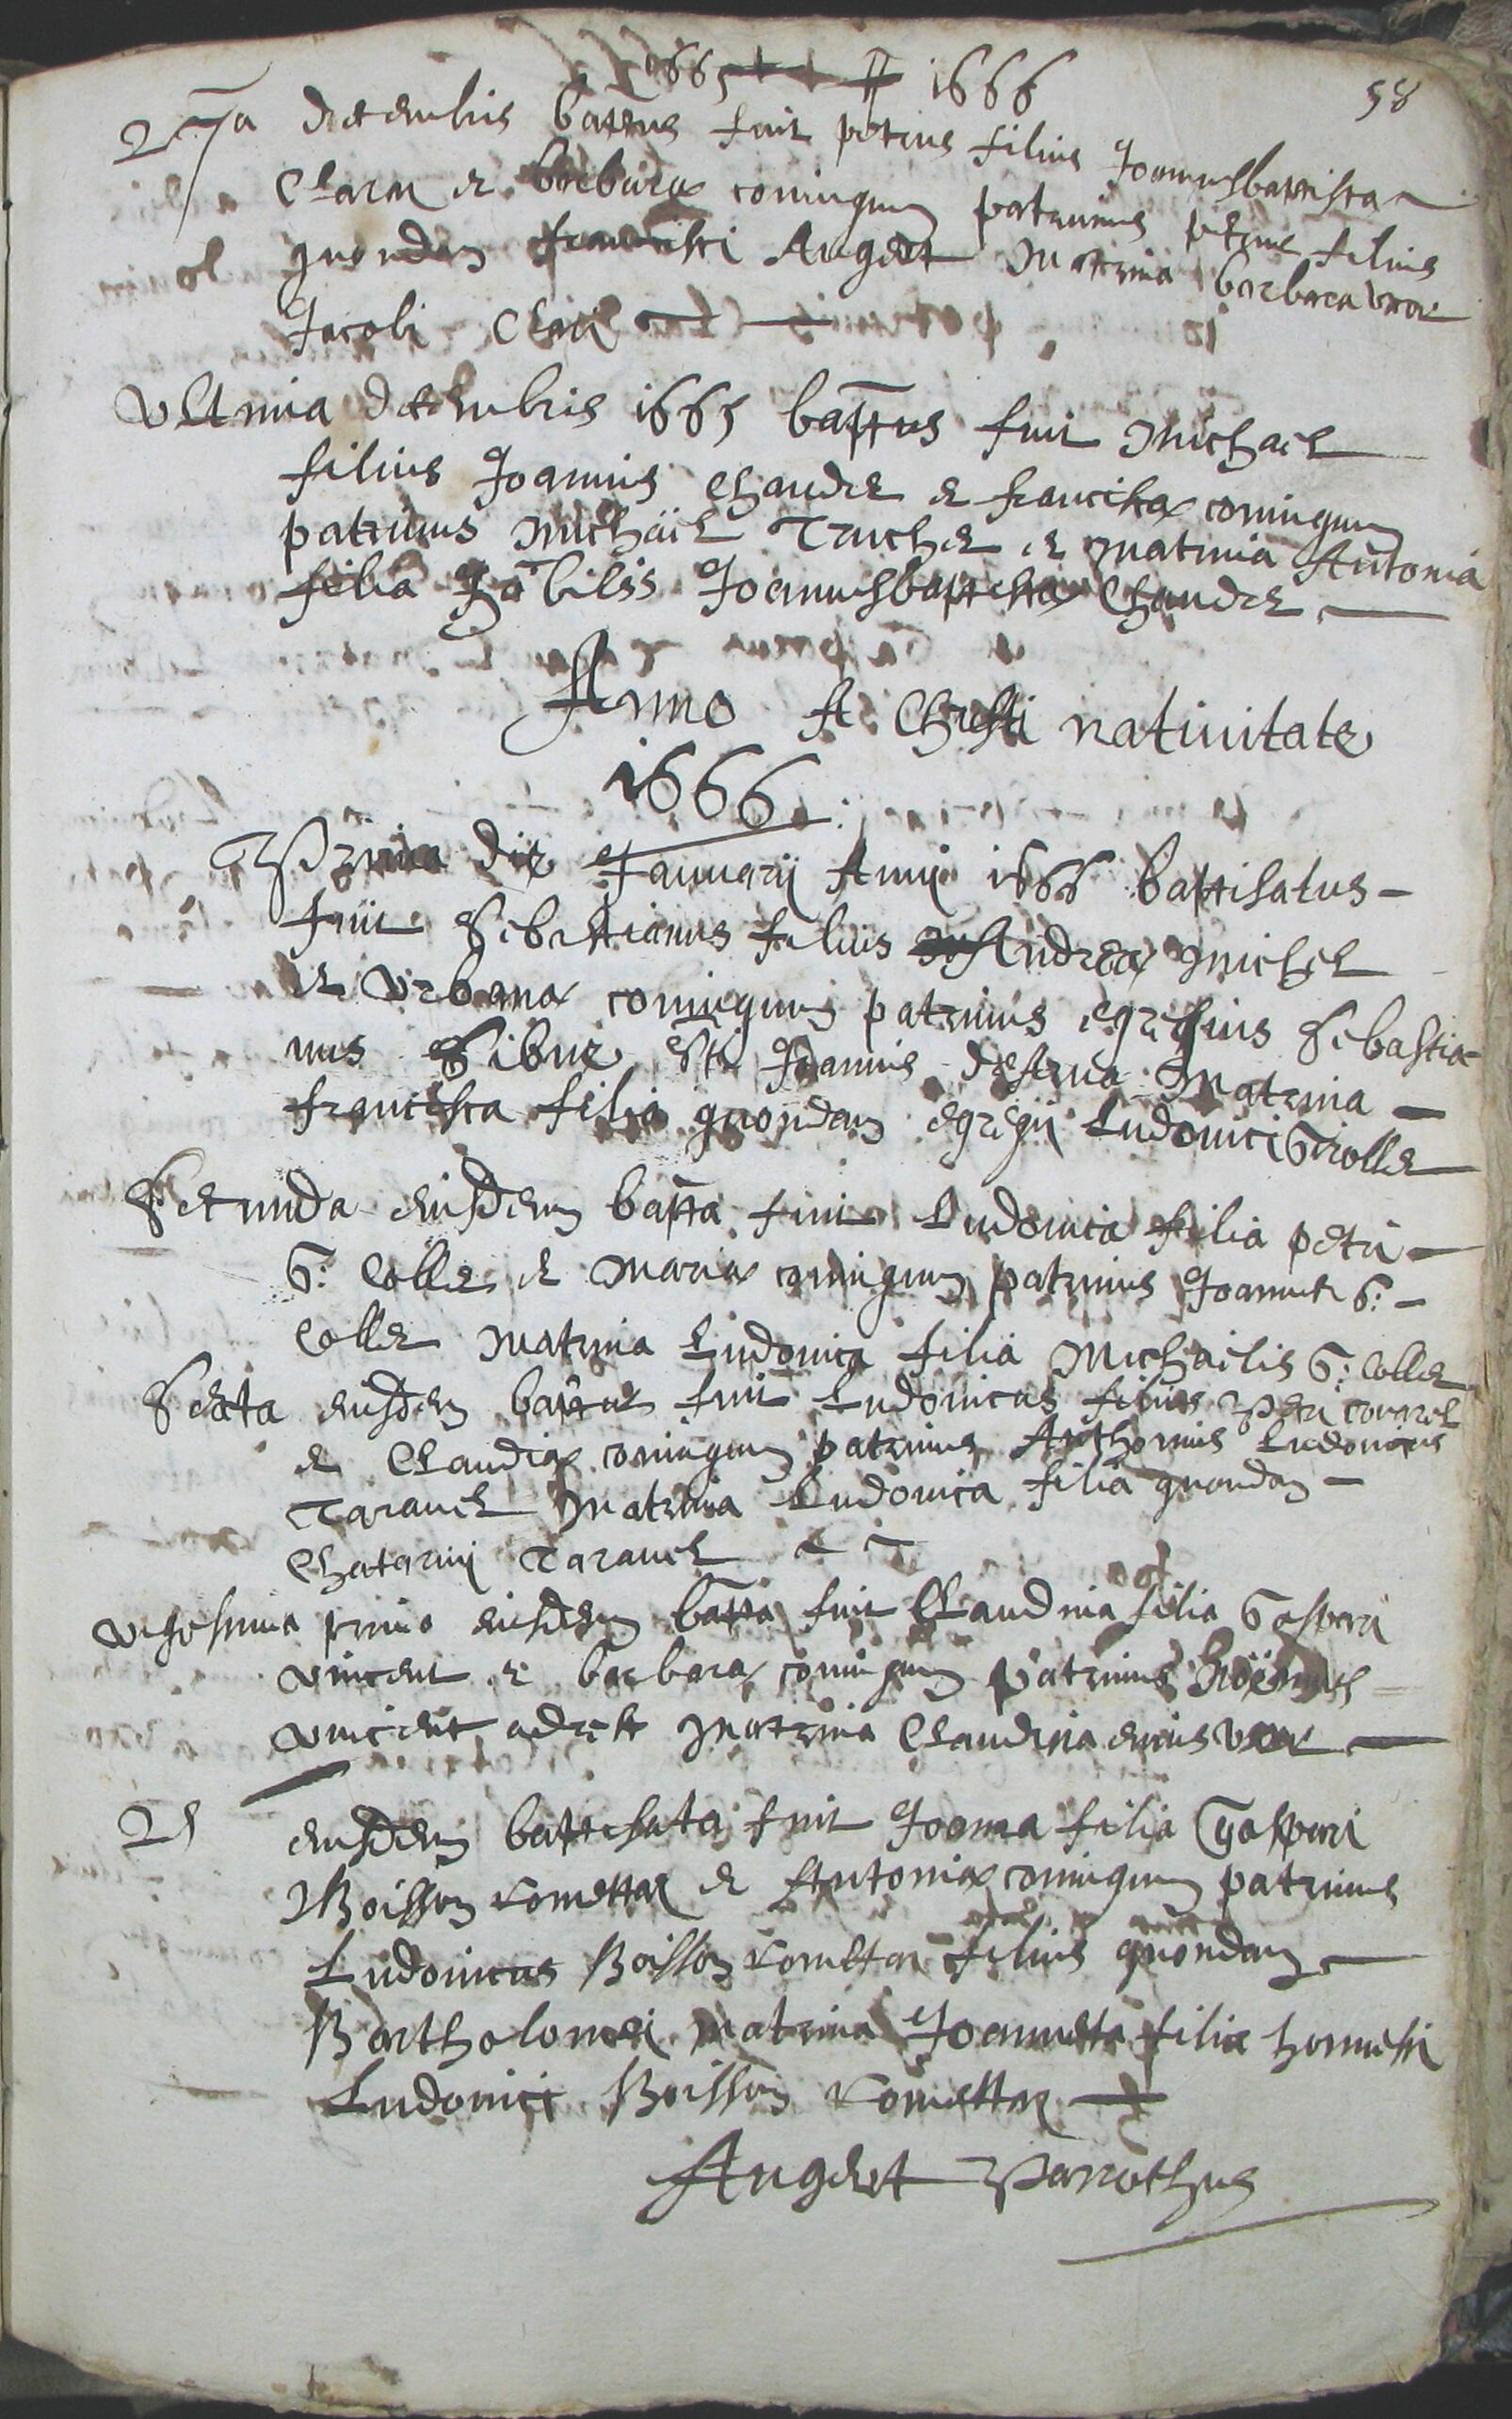 1665 1666
58
27a decembris battus fuit petrus filius Joannisbaptista
Clarar et barbaræ coniugum patrinus petrus filius
quondam francisci Angert Matrina barbara uxor
Jacobi Clari
Ultima decembris 1665 battus fuit Michael
filius Joannis Chaudel et franciscæ coniugum
patrinus Michäel Truchet et matrina Antonia
filia Joannisbaptistæ Chaudel
Anno A Christi nativitate
1666
Prima die Januarij Anni 1666 baptisatus
fuit Sebastianus filius Andreæ Michel
et Urbanæ coniugum patrinus egregius Sebastia
nus Sibue Sti Joannis Matrina
francisca filia quondam egregij Ludovici Grolle
Secunda eiusdem batta fuit Ludovica filia petri
G: Colle et Mariæ coniugum patrinus Joannes G:
Colle Matrina Ludovica filia Michaelis G: Colle
Sexta eiusdem battus fuit Ludovicus filius petri
et Claudiæ coniugum patrinus Anthonius Ludovicus
Taravel Matrina Ludovica filia quondam
Chatarini Taravel
Vigesima prima eiusdem batta fuit Claudina filia Gaspari
Vincent et barbaræ coniugum patrinus
Vincent Matrina Claudina eius uxor
25 eiusdem battisata fuit Joanna filia Gaspari
Boisson et Antoniæ coniugum patrinus
Ludovicus Boisson filius quondam
Bartholomei matrina Joannetta filia honnesti
Ludovici Boisson
Angert Parrochus